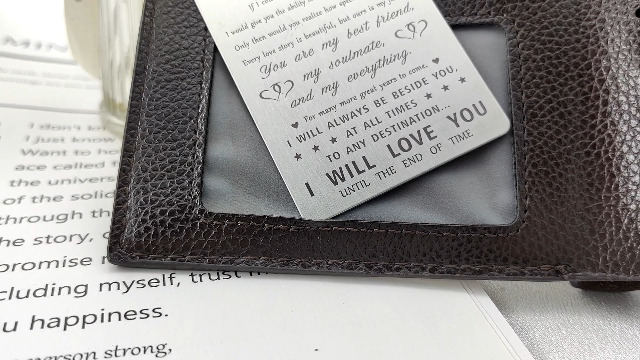 If I co
I would give you the ability
Only then would you realize how spec
Every love story is beautiful, but ours is my
You are my best friend,
my soulmate,
and my everything.
For many more great years to come.
I WILL ALWAYS BE BESIDE YOU,
AT ALL TIMES
TO ANY DESTINATION...
I WILL LOVE YOU
UNTIL THE END OF TIME
I don't kn
I just know
Want to ho
ace called
the univers
of the solic
through th
the story,
promise
cluding myself, trust m
u happiness.
person strong,